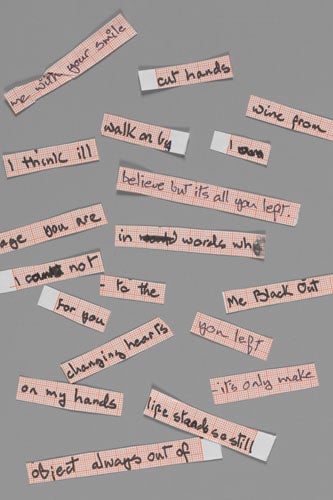 me with your smile
cut hands
wine from
walk on by
I
I think ill
believe but it's all you left.
age you are
in words wh
I not
to the
Me Black Out
For you
you left
changing hearts
it's only make
on my hands
life stands so still
object always out of